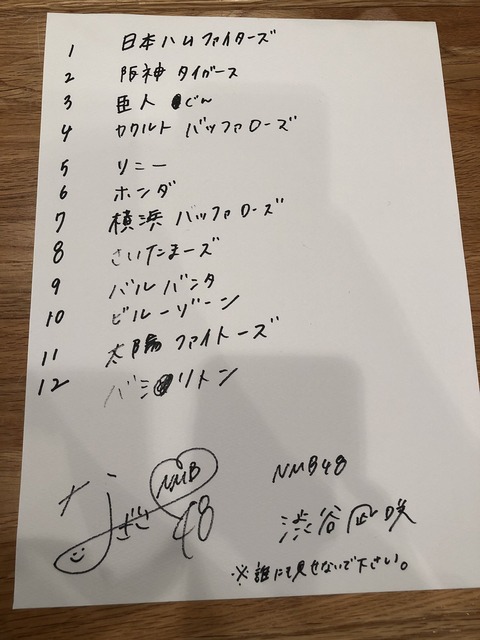 1 日本ハムファイターズ
2 阪神タイガース
3 亜人 じん
4 ヤクルト バッファローズ
5 ソニー
6 ホンダ
7 横浜 バッファローズ
8 さいたまーズ
9 バルバンタ
10 ビルーゾーン
11 太陽ファイトーズ
12 バシリトン
なぎさ
NMB
48
NMB48
渋谷凪咲
※誰にも見せないで下さい。